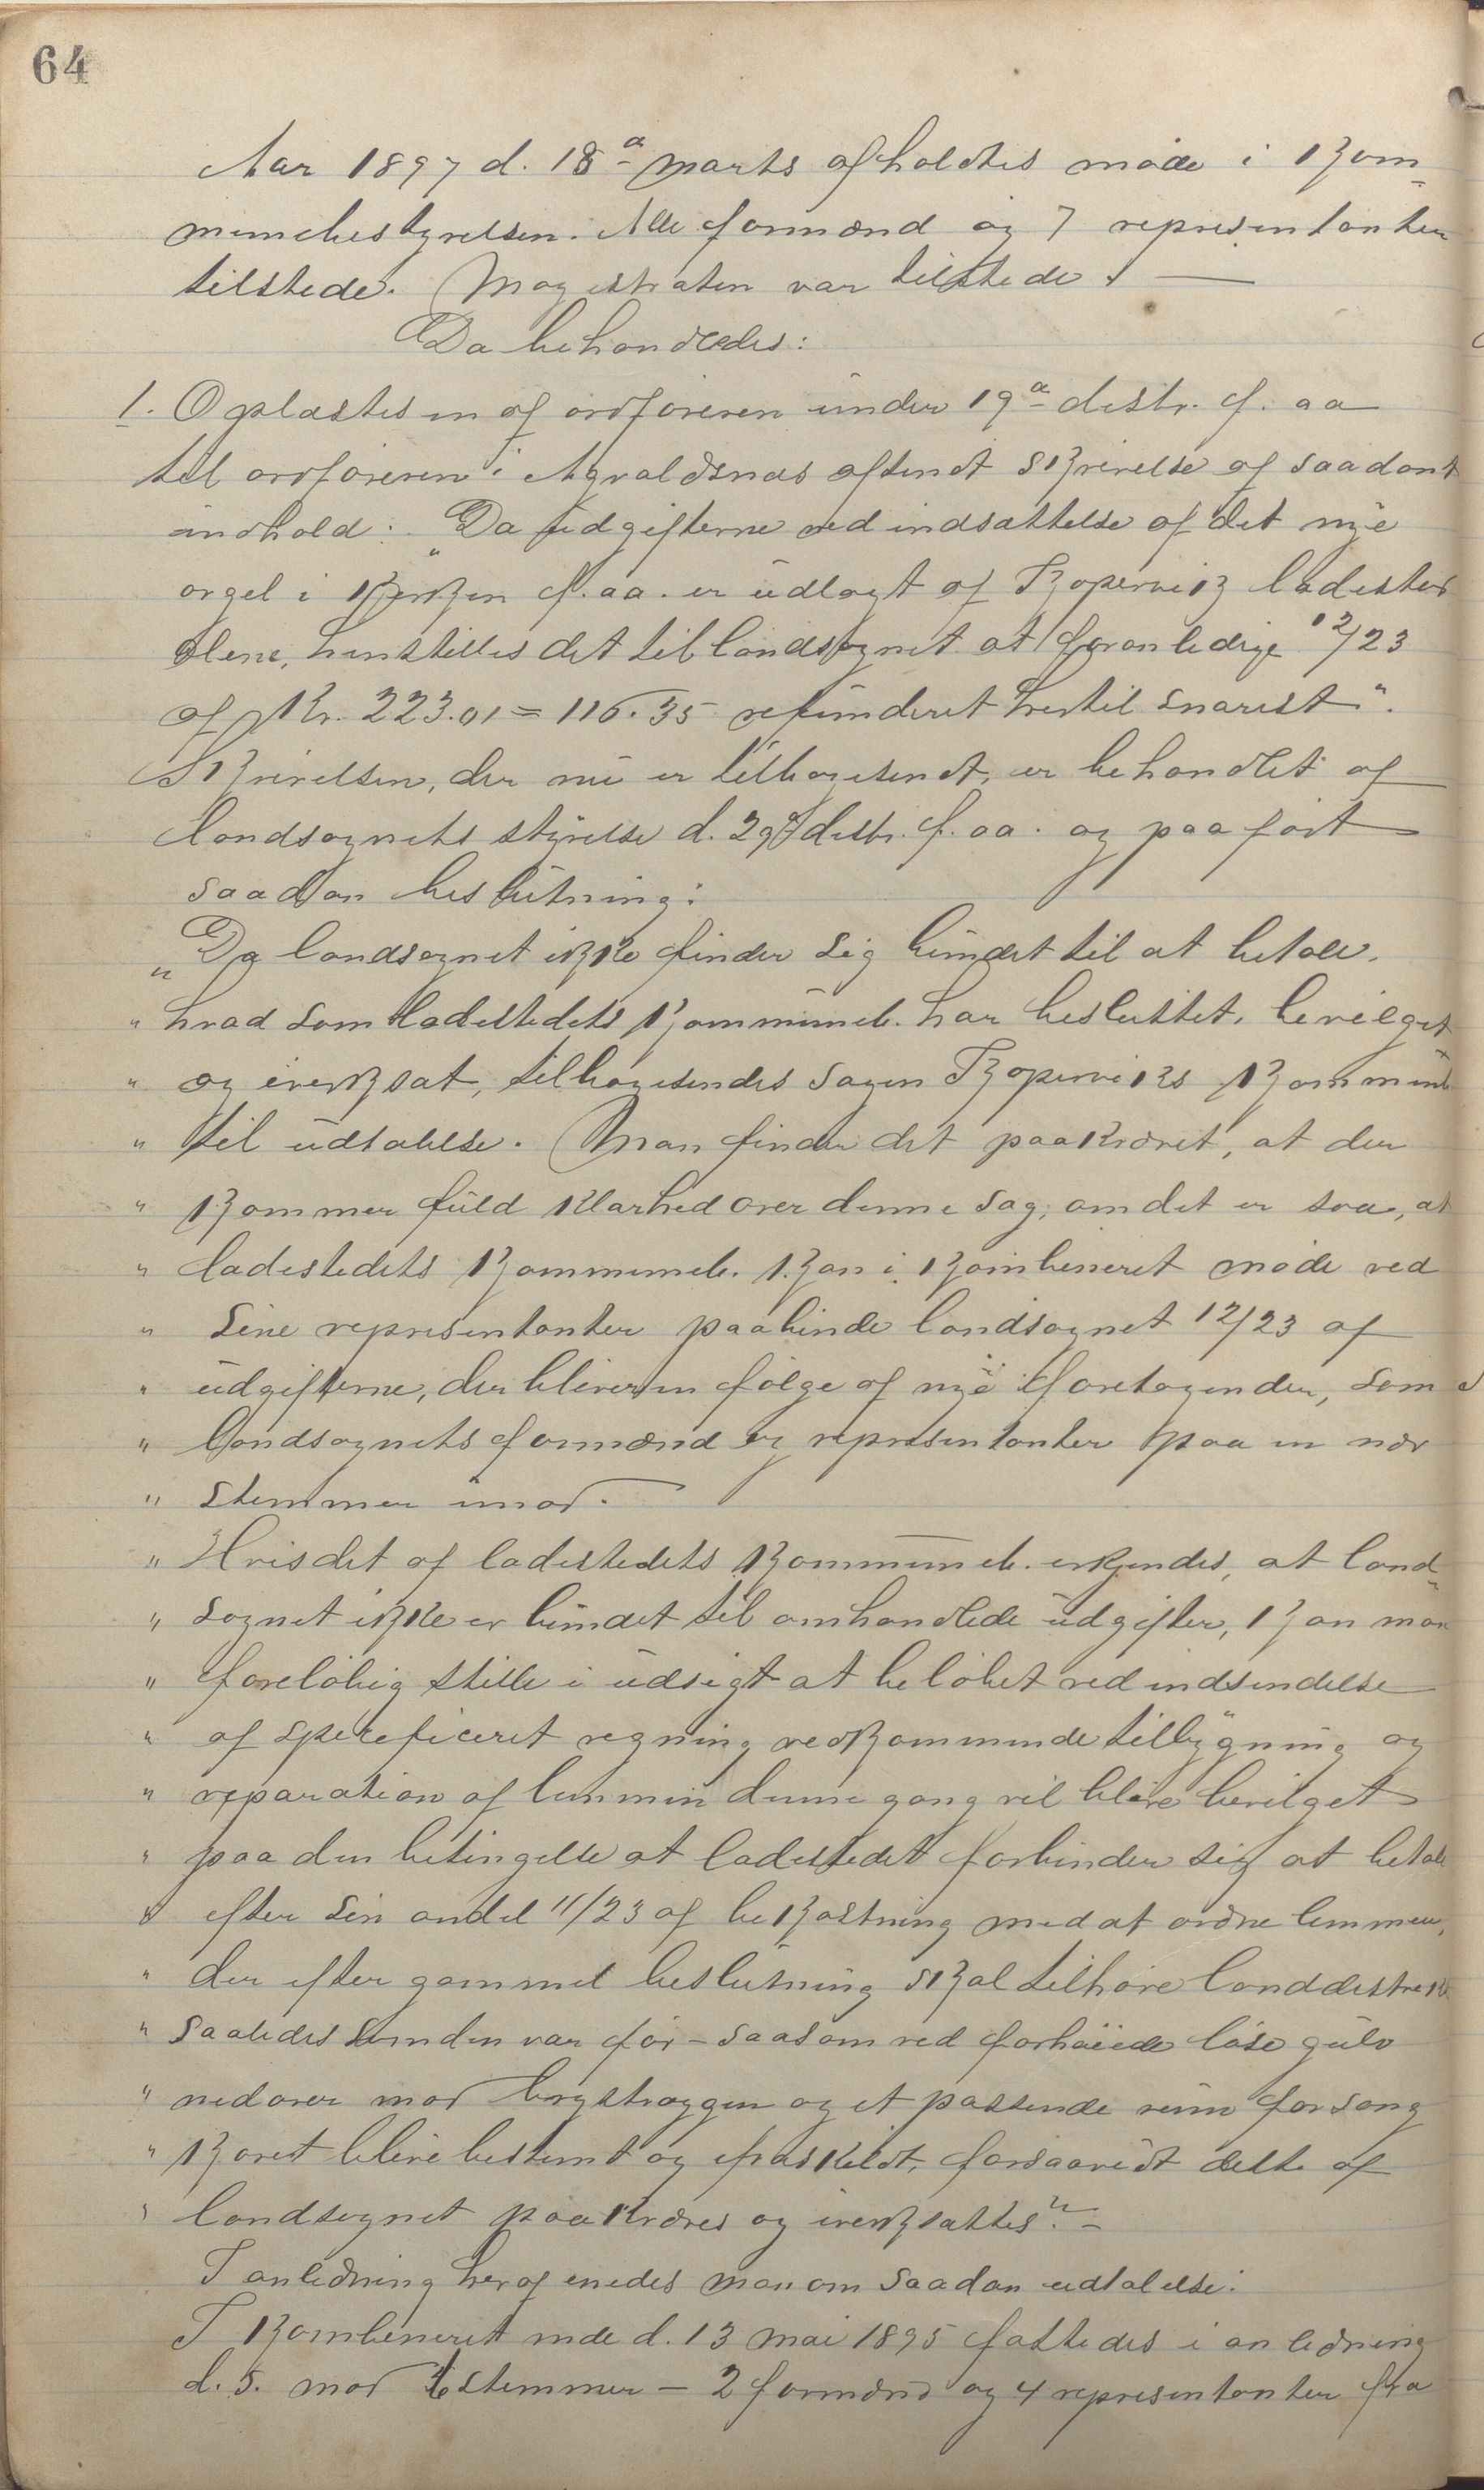 64
Aar 1897 d. 18de marts afholdtes møde i kom-
munebestyrelsen. Alle formænd og 7 representanter
tilstede. Magistraten var tilstede. —
Da behandledes:
1. Oplæstes en af ordføreren under 19de decbr. f. aa
til ordføreren i Agvaldsnæs afsendt skrivelse af saadant
indhold: „Da udgifterne ved indsættelse af det nye
orgel i kirken f. aa. er udlagt af Kopervik ladested
alene, henstilles det til landsognet at foranledige 12/23
af Kr. 223.01 = 116.35 refunderet hertil snarest“.
Skrivelsen, der nu er tilbagesendt, er behandlet af
landsognets styrelse d. 29de decbr. f. aa. og paaført
saadan beslutning:
„Da landsognet ikke finder sig bundet til at betale,
„ hvad som ladestedets kommuneb. har besluttet, bevilget
„ og iverksat, tilbagesendes sagen Kopervik's kommuneb
„ til udtalelse. Man finder det paakrævet, at der
„ kommer fuld klarhed over denne sag, om det er saa, at
„ ladestedets kommuneb. kan i kombineret møde ved
„ sine representanter paabinde landsognet 12/23 af
„ udgifterne, der bliver en følge af nye foretagender, som
„ landsognets formænd og representanter paa en nær
„ stemmer imod.
„ Hvis det af ladestedets kommuneb. erkjendes, at land-
„ sognet ikke er bundet til omhandlede udgifter, kan man
„ foreløbig stille i udsigt at beløbet ved indsendelse
„ af spesificeret regning vedkommende tilbygning og
„ reparation af lemmen denne gang vil blive bevilget
„ paa den betingelse at ladestedet forbinder sig at betale
„ efter sin andel 11/23 af bekostning med at ordne lemmen,
„ der efter gammel beslutning skal tilhøre landdistrikt
„ saaledes som den var før – saasom ved forhøiede løse gulv
„ nedover mod brystvæggen og et passende rum for sang
„ koret blive bestemt og fraskildt, forsaavidt dette af
„ landsognet paakræves og iverksættes“. –
I anledning heraf enedes man om saadan udtalelse:
I kombineret møde d. 13 mai 1895 fattedes i anledning
d. s. mod 6 stemmer – 2 formænd og 4 representanter fra